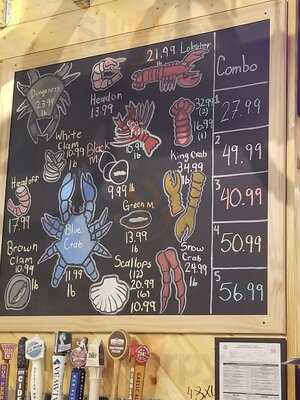 21.99 Lobster
Dungeness
23.99
lb
Head on
13.99
32.99
(2)
16.99
(1)
White
Clam
10.99
lb
Black
M
9.99 lb
10.99
lb
King Crab
34.99
lb
Head off
17.99
Blue
Crab
11.99
lb
Green M
13.99
lb
Brown
Clam
10.99
lb
Scallops
(12)
20.99
(6)
10.99
Snow
Crab
24.99
lb
Combo
1
27.99
2
49.99
3
40.99
4
50.99
5
56.99